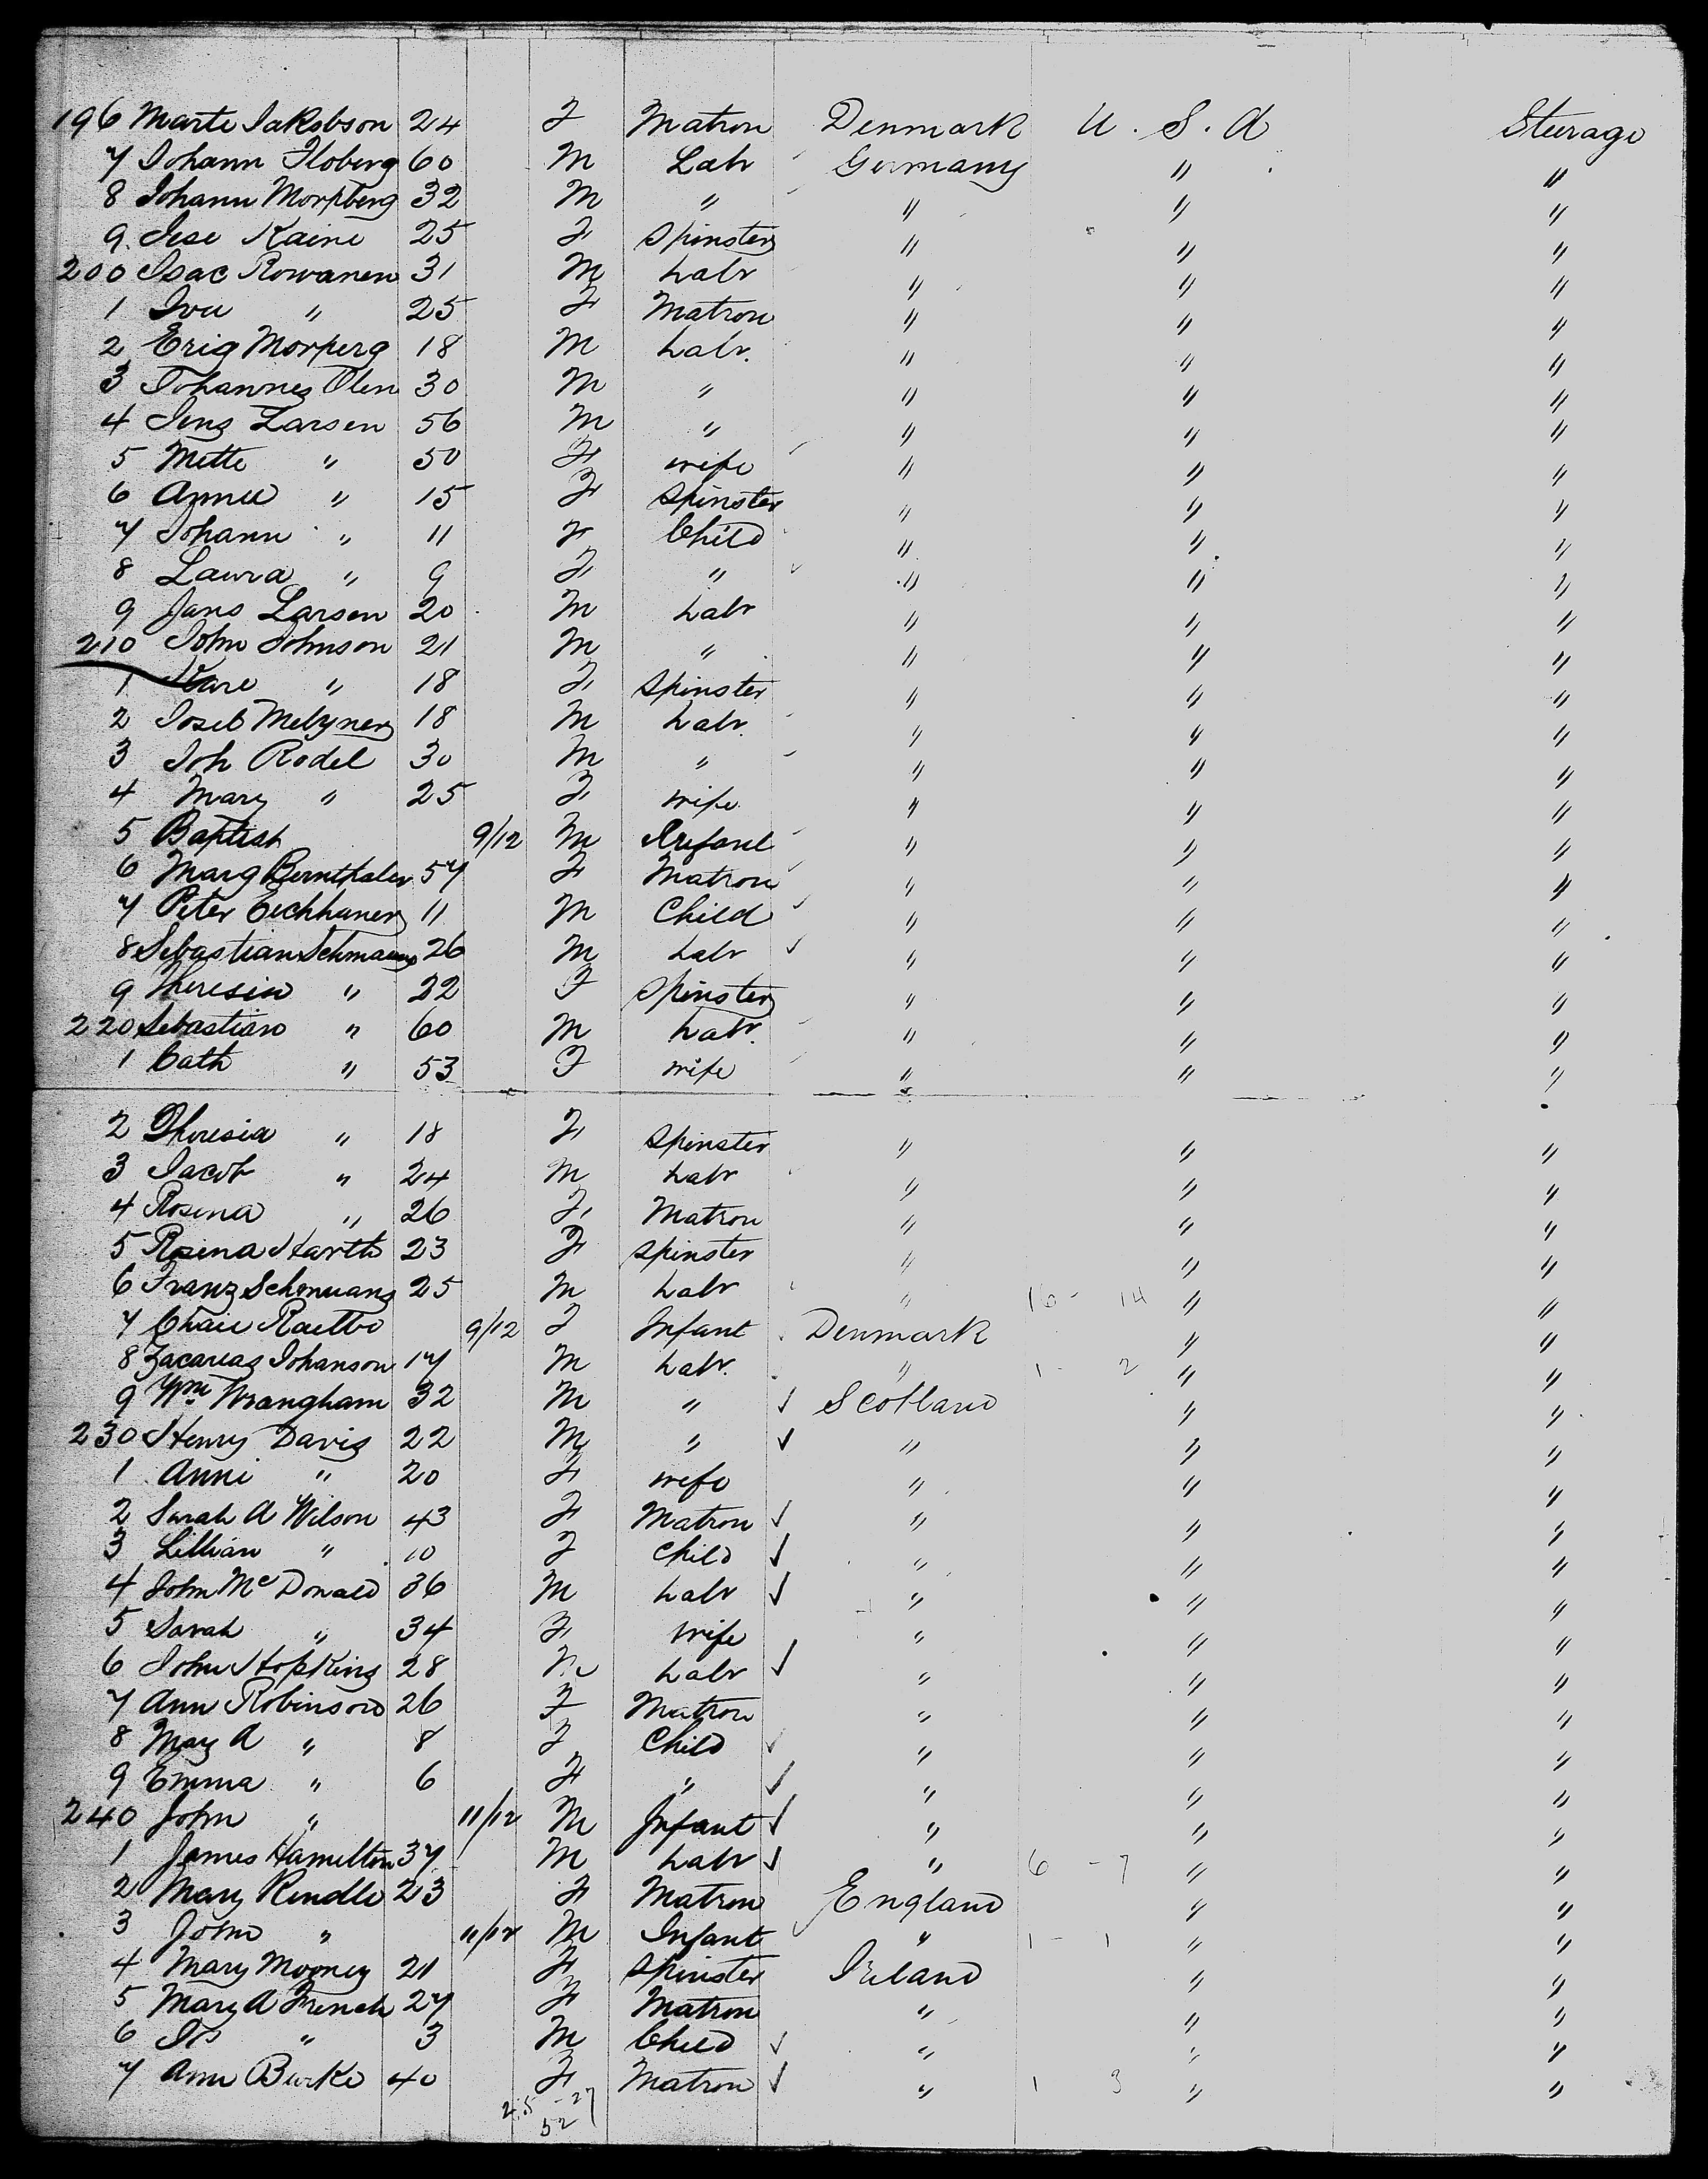 196 Marte Jakobson 24 F Matron Denmark U. S. A Steerage
7 Johann Floberg 60 M Labr Germany " "
8 Johann Morpberg 32 M " " " "
9 Jese Kaine 25 F Spinster " " "
200 Isac Rowanen 31 M Labr " " "
1 Iva " 25 F Matron " " "
2 Erig Morperg 18 M Labr. " " "
3 Johannes Olen 30 M " " " "
4 Jens Larsen 56 M " " " "
5 Mette " 50 F wife " " "
6 Annie " 15 F Spinster " " "
7 Johann " 11 F Child " " "
8 Laura " 9 F " " " "
9 Jans Larsen 20 M Labr " " "
210 John Johnson 21 M " " " "
1 Kare " 18 F Spinster " " "
2 Joseb Melzner 18 M Labr. " " "
3 Joh Rodel 30 M " " " "
4 Mary " 25 F wife " " "
5 Baptish 9/12 M Infant " " "
6 Marg Bernthaler 57 F Matron " " "
7 Peter Eichhaner 11 M Child " " "
8 Sebastian 26 M Labr " " "
9 Theresia " 22 F Spinster " " "
220 Sebastian " 60 M Labr. " " "
1 Cath " 53 F wife " " "
2 Theresia " 18 F Spinster " " "
3 Jacob " 24 M Labr " " "
4 Rosina " 26 F Matron " " "
5 Rosina Harth 23 F Spinster " " "
6 Franz Schonuang 25 M Labr " 16 - 14 " "
7 Raettvo 9/12 F Infant Denmark " "
8 Zacareas Johanson 17 M Labr. " 1 - 2 " "
9 Wm Wrangham 32 M " Scotland " "
230 Henry Davis 22 M " " " "
1 Anni " 20 F wife " " "
2 Sarah A Wilson 43 F Matron " " "
3 Lillian " 10 F Child " " "
4 John McDonald 36 M Labr " " "
5 Sarah " 34 F wife " " "
6 John Hopkins 28 M Labr " " "
7 Ann Robinson 26 F Matron " " "
8 Mary A " 8 F Child " " "
9 Emma " 6 F " " " "
240 John " 11/12 M Infant " " "
1 James Hamilton 37 M Labr " 6 - 7 " "
2 Mary Rendle 23 F Matron England " "
3 John " 11/12 M Infant " 1 - 1 " "
4 Mary Mooney 21 F Spinster Ireland " "
5 Mary A French 27 F Matron " " "
6 " 3 M Child " " "
7 Ann Burke 40 F Matron " 1 3 " "
25 - 27
52